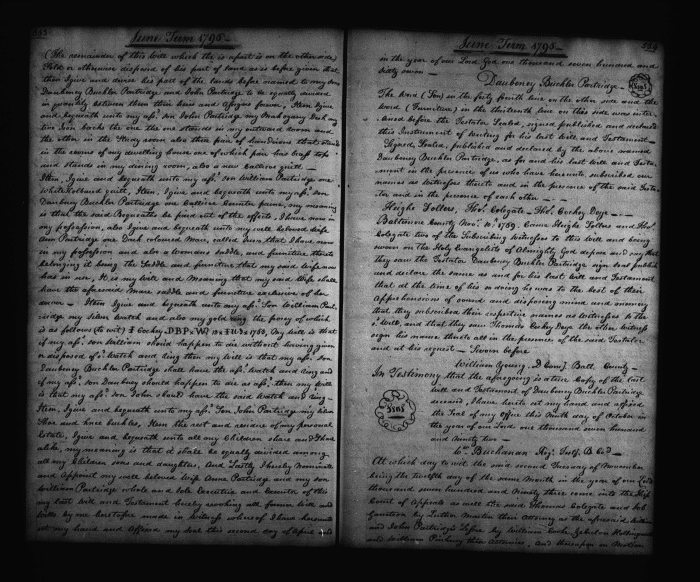 June Term 1795
(The remainder of this Will which the is apart is on the other side)
Sold or otherwise disposed of his part of Land as is before given that
then I give and devise his part of the Lands before named to my son
Daubeney Buckler Partridge and John Partridge to be equally divided
in quantity between them their heirs and Assigns forever, Item I give
and bequeath unto my afs.d Son John Partridge my Mahogany Desk my
two Iron backs the one the one stands in my outward room and
the other in the Study room also three pair of handirons that stand
in the rooms of my dwelling house one of which pair has brass tops
and stands in my dining room, also a new Cattirne quilt
Item, I give and bequeath unto my afs.d son William Partridge one
white Holland quilt, Item, I give and bequeath unto my afs.d son
Daubeny Buckler Partridge one Cattirne Counter paine, my meaning
is that the said Bequeaths be paid out of the effects, I have now in
my possession, also I give and bequeath unto my well beloved wife
Ann Partridge one Dark coloured Mare, called that I have now
in my possession and also a womans saddle, and furniture thereto
belonging it being the saddle and furniture that my said wife now
has in use, it is my will and Meaning that my said Wife shall
have the aforesaid Mare saddle and furniture exclusive of her
dower - Item I give and bequeath unto my afs.d Son William Part-
ridge my silver Watch and also my gold ring the posey of which
is as follows (to wit) I Cockey D B P & W 1760, My will is that
if my afs.d son William should happen to die without having given
or disposed of s.d watch and ring then my will is that my afs.d Son
Daubeny Buckler Partridge shall have the afs.d Watch and ring and
if my afs.d son Daubeny should happen to die as afs.d then my will
is that my afs.d son John should have the said Watch and ring
Item, I give and bequeath unto my afs.d Son John Partridge my silver
Shoe and knee buckles, Item the rest and residue of my personal
Estate, I give and bequeath unto all my Children share and share
alike, my meaning is that it shall be equally divided among
all my Children sons and daughters, And Lastly I hereby Nominate
and Appoint my well beloved wife Anne Partridge and my son
William Partridge whole and sole Executrix and Executor of this
my last will and Testament hereby revoking all former wills and
wills by me heretofore made in witness whereof I have hereunto
set my hand and affixed my seal this second day of April
June Term 1795
in the year of our Lord God one thousand seven hundred and
sixty seven
Daubeney Buckler Partridge (Seal)
The Word (Son) in the forty fourth line on the other side and the
word (Furniture) in the thirteenth line on this side was inter-
lined before the Testator Sealed, signed published and declared
this Instrument of Writing for his last will and Testament
Signed, Sealed, published and declared by the above named
Daubeney Buckler Partridge, as for and his last will and Testa-
ment in the presence of us who have hereunto subscribed our
names as Witnesses thereto and in the presence of the said Testa-
tor and in the presence of each other
Heighe Sollers, Tho.s Colegate - Tho.s Cockey Deye
Baltimore County Nov.r 10, 1769. Came Heighe Sollers and Tho.s
Colegate two of the Subscribing Witnesses to this will and being
sworn on the Holy Evangelists of Almighty God depose and say that
they saw the Testator Daubeny Buckler Partridge sign Seal publish
and declare the same as and for his last Will and Testament
that at the time of his so doing he was to the best of their
Apprehensions of sound and disposing mind and memory
that they subscribed their respective names as Witnesses to the
s.d Will, and that they saw Thomas Cockey Deye the other witness
sign his name thereto all in the presence of the said Testator
and at his request - Sworn before
William Young, D Com.y Balt. County
In Testimony that the aforegoing is a true Copy of the last
will and Testament of Daubeny Buckler Partridge
deceased, I have hereto set my hand and affixed
the Seal of my Office this Ninth day of October in
the year of our Lord one thousand seven hundred
and Ninety two
(Seal)
W. Buchanan Reg. Wills B. Co
At which day to wit the said second Tuesday of November
being the twelfth day of the same Month in the year of our Lord
thousand seven hundred and Ninety three came into the High
Court of Appeals as well the said Thomas Colegate and
by their Attorney as the aforesaid William
and John Partridge
and William Pinkney their Attornies, And thereupon on Motion